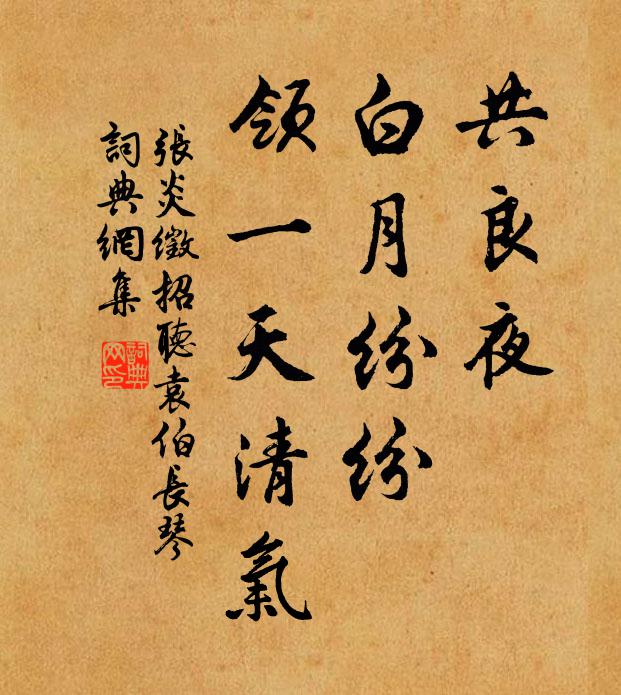 共良夜
白月纷纷
领一天清氣
張炎徵招聽袁伯長琴
詞典網集
詞典
网印